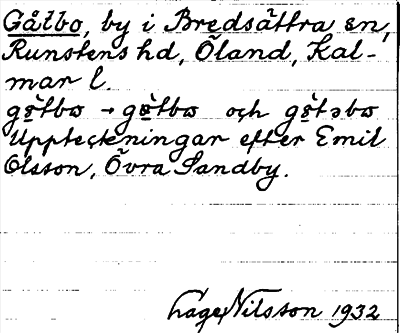 Gåtbo, by i Bredsättra sn,
Runstens hd, Öland, Kal-
mar l.
gǫ̀tbɷ → gǫ̀tbɷ och gǫ̀təbɷ
Uppteckningar efter Emil
Olsson, Övra Sandby.
Lage Nilsson 1932